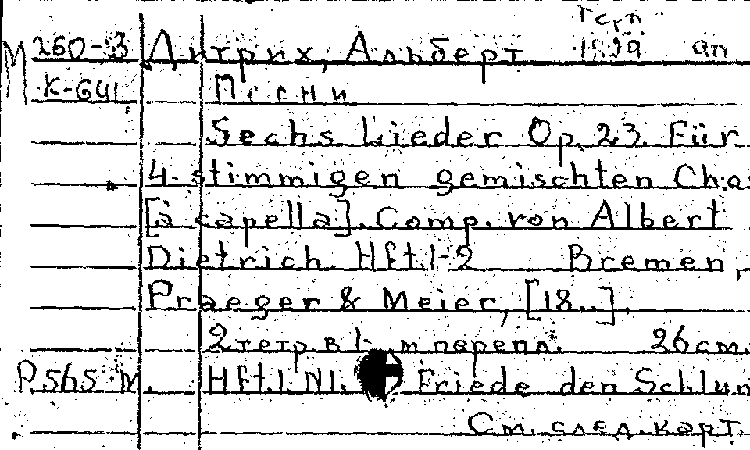 герп
М 260-3 Дитрих, Альберт 1829 ап
К-641 Песни
Sechs Lieder Op. 23. Für
4-stimmigen gemischten Cho
[à capella]. Comp. von Albert
Dietrich. Hft. 1-2 Bremen,
Praeger & Meier, [18..].
2 тетр. в 1- м перепл. 26 см.
P. 565 м. Hft. 1. N1. Friede den Schlum
См. след. карт